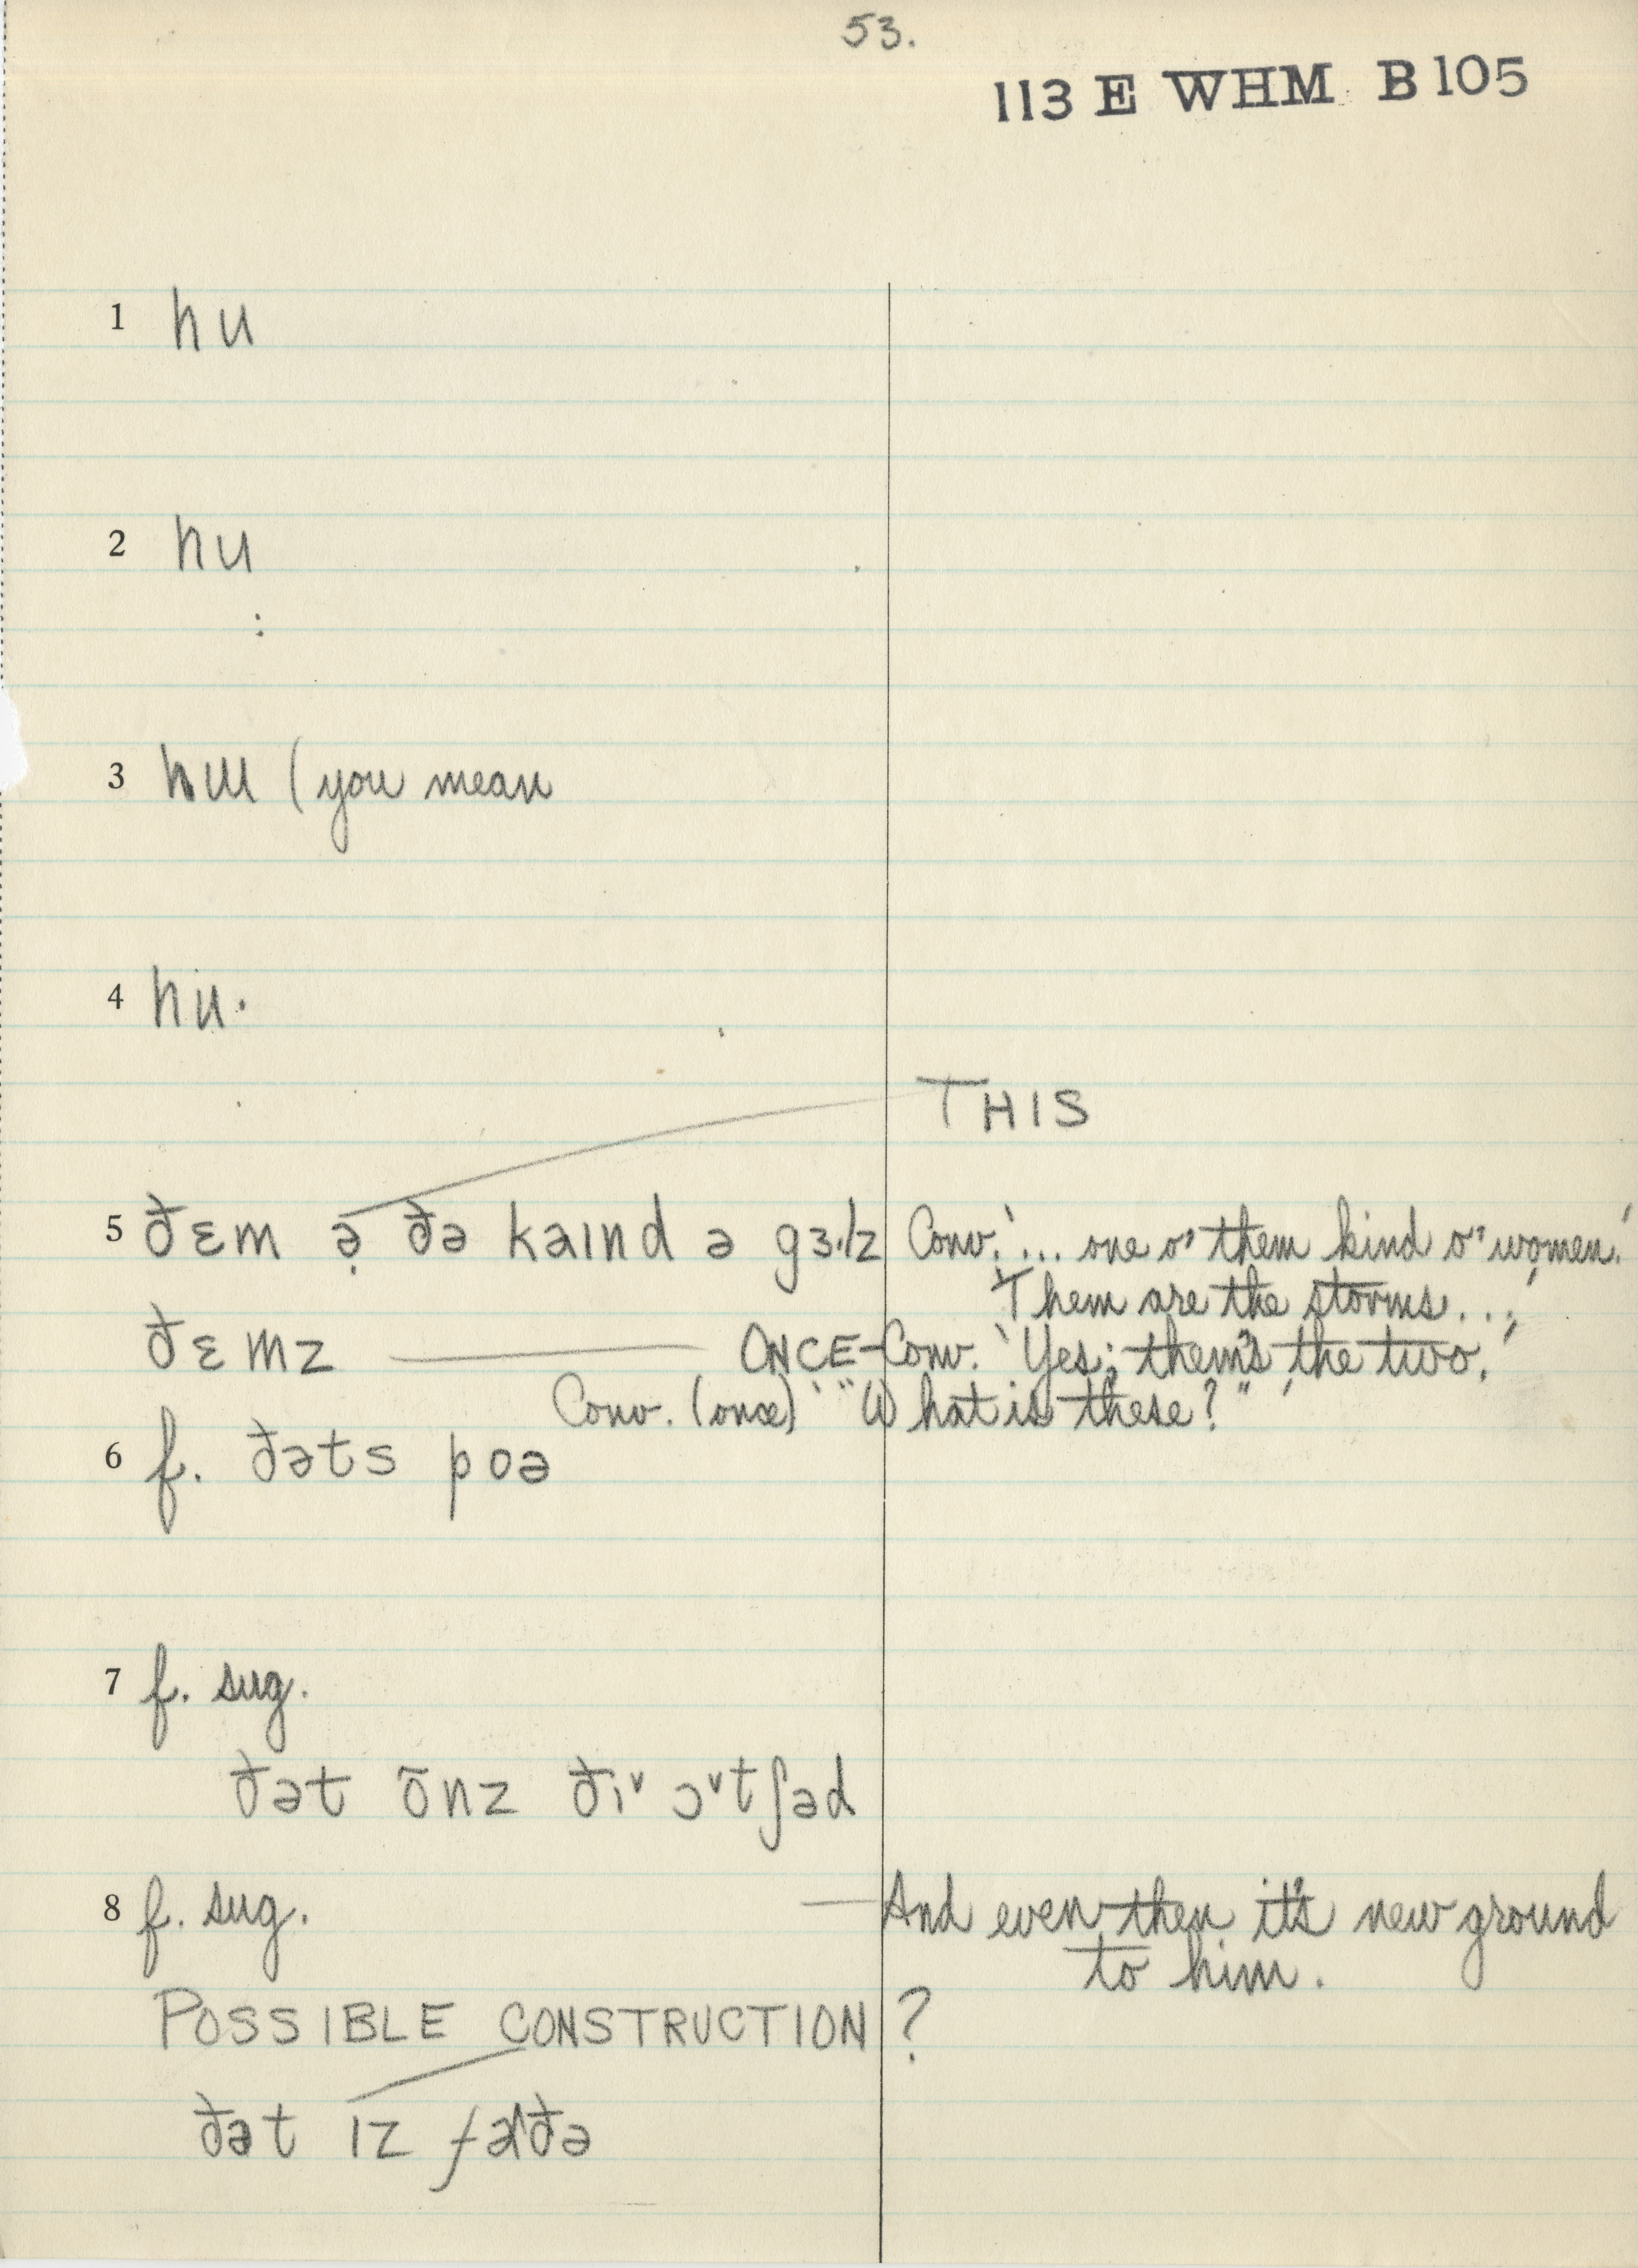 53.
113 E WHM B 105
1 hu
2 hu
3 hu (you mean
4 hu.
THIS
5 ðɛm ə̣ ðə kaɪnd ə gɝlz Conv. '... one o' them kind o' women.'
'Them are the storms...'
ðɛmz — ONCE-Conv. 'Yes; them's the two.'
Conv. (once) '"What is these?"'
6 f. ðəts poə
7 f. sug.
ðət õnz ðɪ˅ ɔ˅tʃəd
8 f. sug. — And even then it's new ground
to him.
POSSIBLE CONSTRUCTION?
ðət ɪz